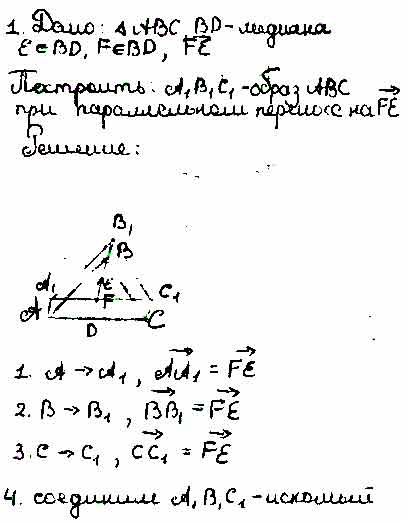 1. Дано: △ABC BD-медиана
E∈BD, F∈BD, FE
Построить: A₁B₁C₁-образ ABC
при параллельном переносе на FE
Решение:
B₁
B
A₁ E C₁
A F C
D
1. A → A₁, AA₁ = FE
2. B → B₁, BB₁ = FE
3. C → C₁, CC₁ = FE
4. соединим A₁B₁C₁-искомый